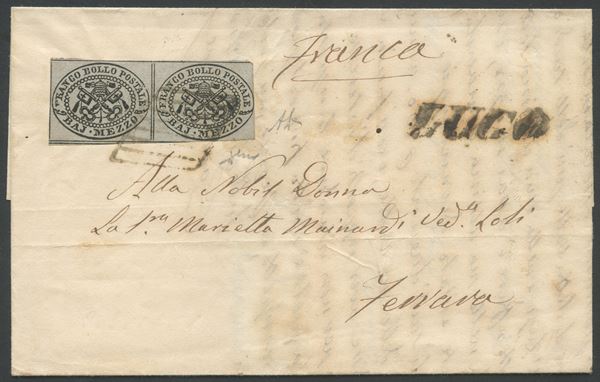 Franca
FRANCO BOLLO POSTALE
BAJ. MEZZO
FRANCO BOLLO POSTALE
BAJ. MEZZO
LUGO
Alla Nobil Donna
La Sra Marietta Mainardi Ved.a Loli
Ferrara